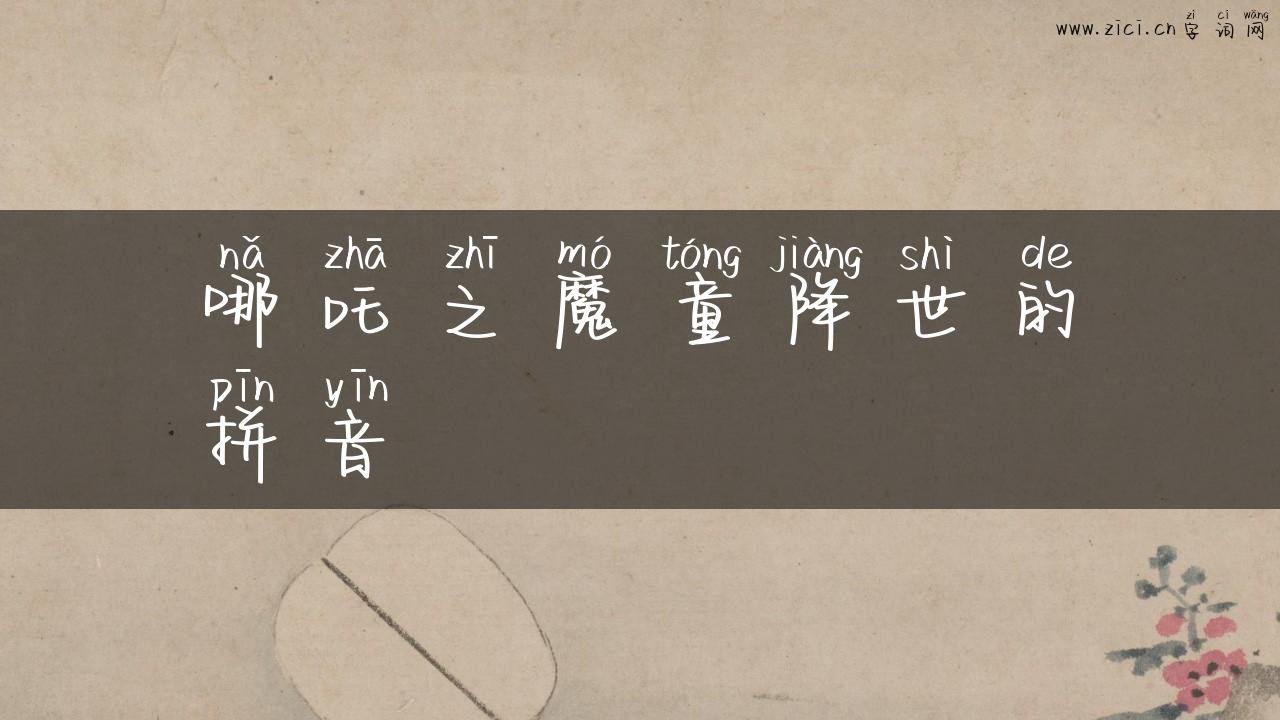 zì cí wǎng
www.zici.cn 字词网
nǎ zhā zhī mó tóng jiàng shì de
哪吒之魔童降世的
pīn yīn
拼音